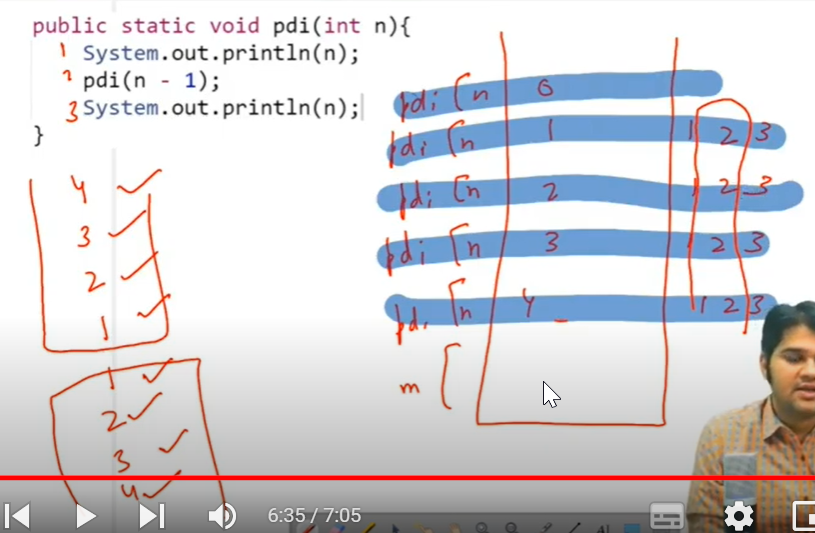 public static void pdi(int n){
1 System.out.println(n);
2 pdi(n - 1);
3 System.out.println(n);
}
pdi n 0
pdi n 1 1 2 3
pdi n 2 1 2 3
pdi n 3 1 2 3
pdi n 4 1 2 3
m
4
3
2
1
1
2
3
4
6:35 / 7:05